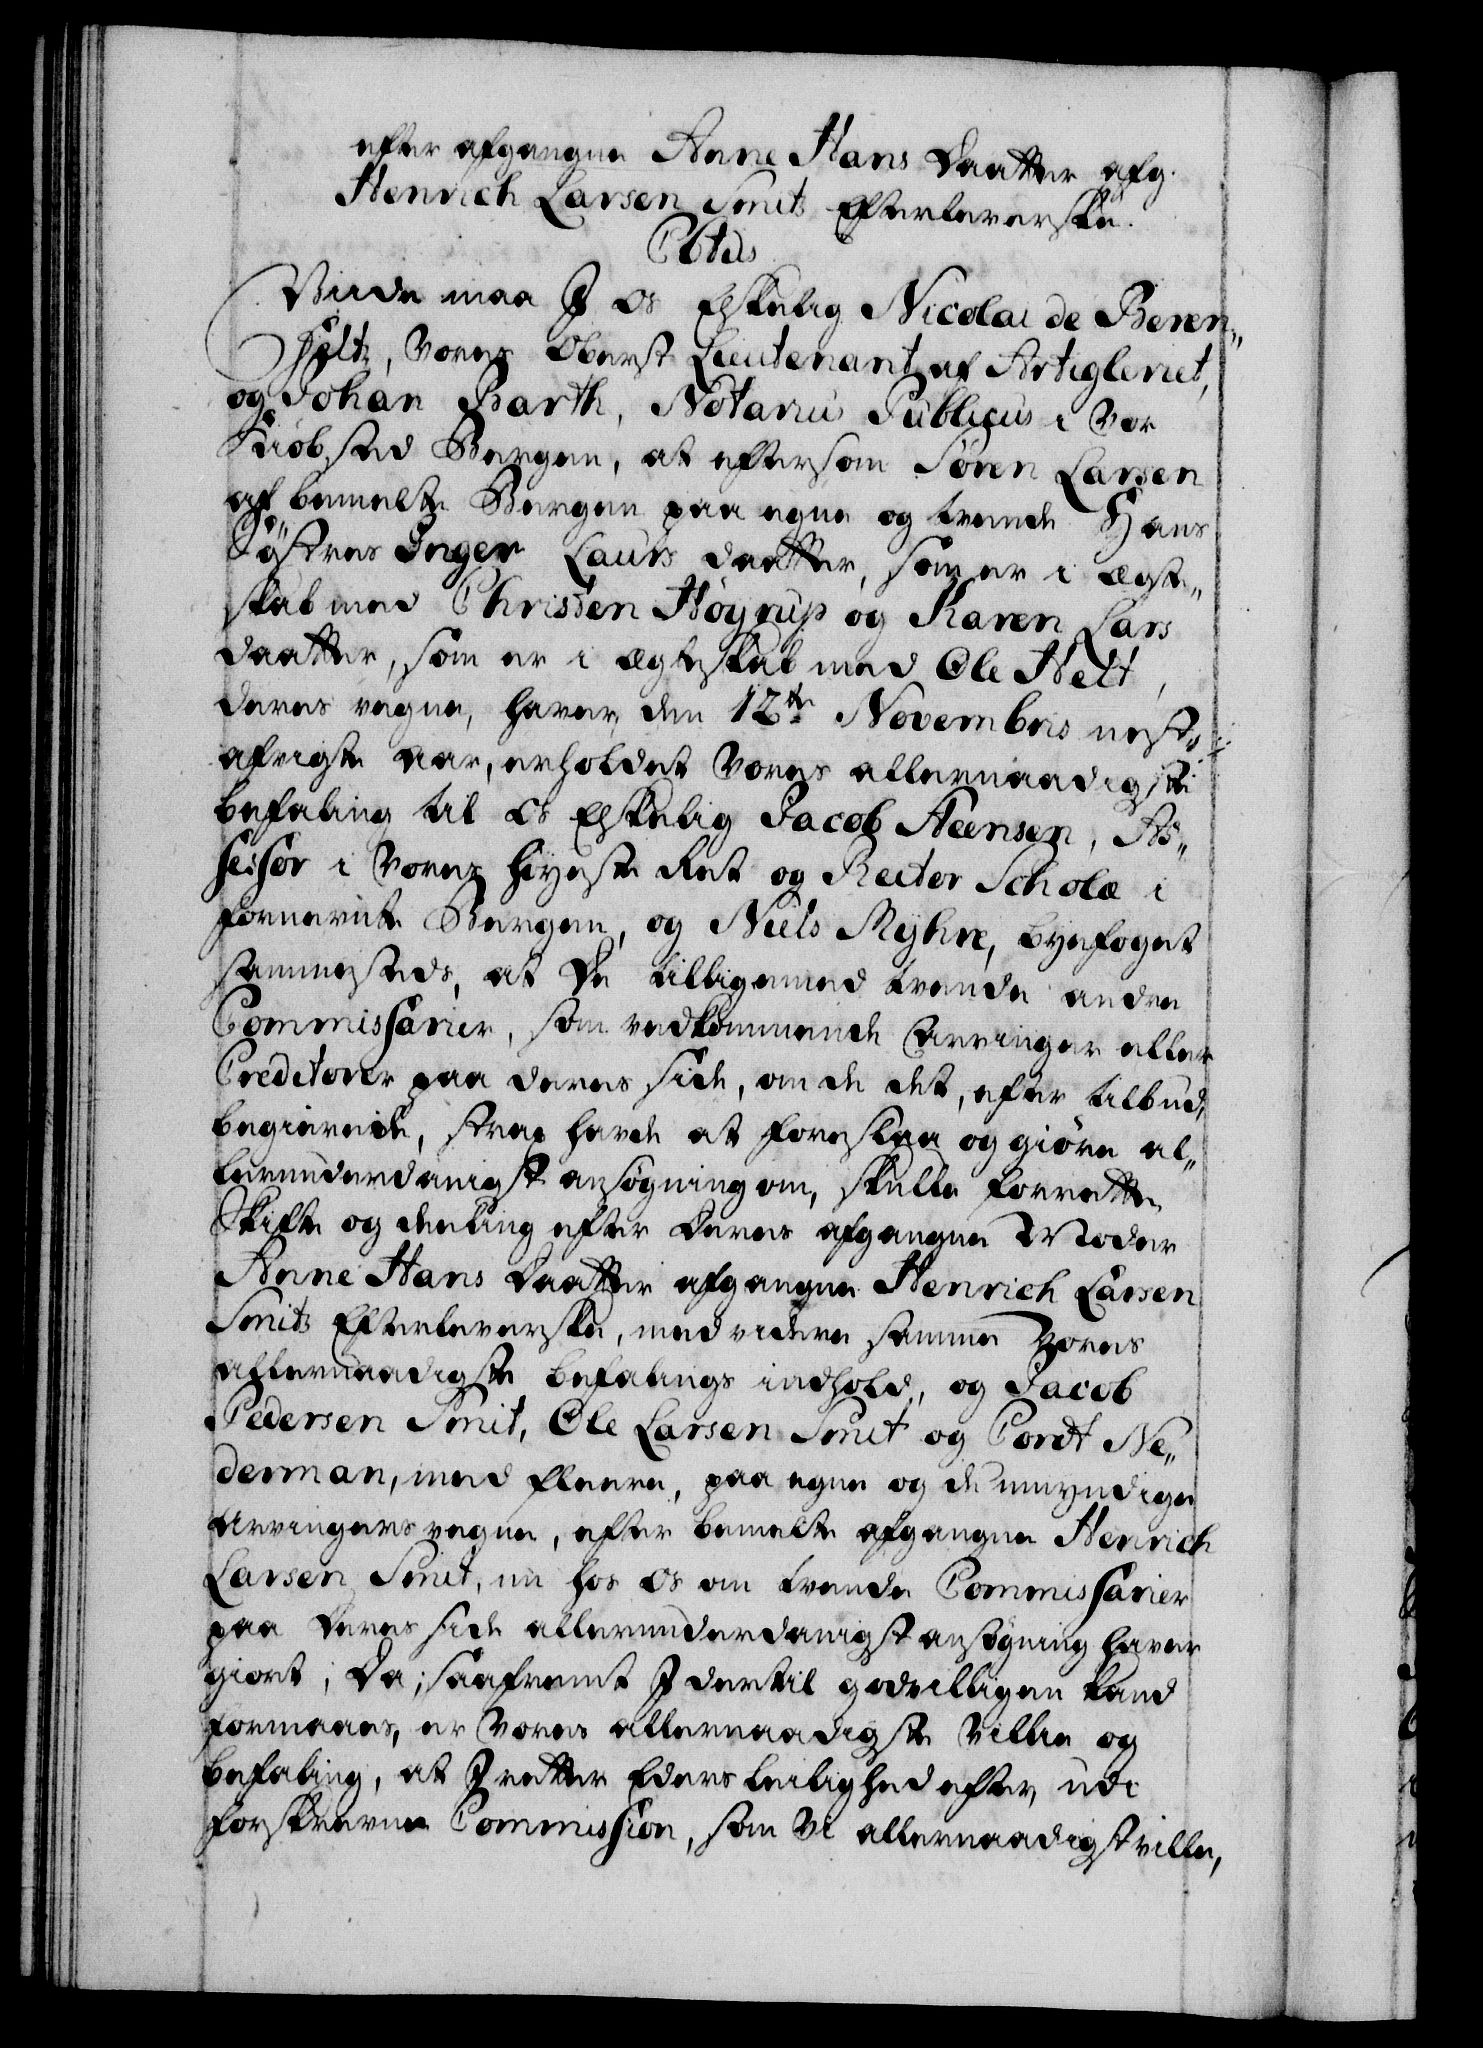 efter afgangne Anne Hans Daatter afg.
Henrich Larsen Smits Efterleverske.
C6tus
Viide maa I Os Elskelig Nicolai de Beren„
Holtz, vores Oberst Lieutenant af Artigleriet,
og Johan Barth, Notarius Publicus i vor
Kiøbsted Bergen, at eftersom Søren Larsen
af bemelte Bergen paa egne og tvende Hans
Søstres Inger Laurs daatter, som er i Ægte„
skab med Christen Høyrup og Karen Lars
daatter, som er i ægteskab med Ole Helt,
deres vegne, haver den 12te Novembris nest„
afvigte aar, erholdet Vores allernaadigste
befaling til Os Elskelig Jacob Steensen, As„
sessor i Vores høyeste Ret og Rector Scholæ i
fornevnte Bergen, og Niels Myhre, byefoget
sammesteds, at De tilligemed tvende andre
Commissarier, som vedkommende Arvinger eller
Creditorer paa deres side, om de det, efter tilbud,
begierede, strax havde at foreslaa og giøre al„
lerunderdanigst ansøgning om, skulle forrette
Skifte og deeling efter Deres afgangne Moder
Anne Hans Daatter afgangne Henrich Larsen
Smits Efterleverske, med videre samme Vores
allernaadigste befalings indhold, og Jacob
Pedersen Smit, Ole Larsen Smit og Cordt Ne„
derman, med fleere, paa egne og de umyndige
Arvingers vegne, efter bemelte afgangne Henrich
Larsen Smit, nu hos Os om tvende Commissarier
paa deres side allerunderdanigst ansøgning haver
giort; Da, saafremt I dertil godvilligen kand
formaaes, er Vores allernaadigste Villie og
befaling, at I retter Eders leilighed efter, udi
forskrevne Commission, som Vi allernaadigst ville,